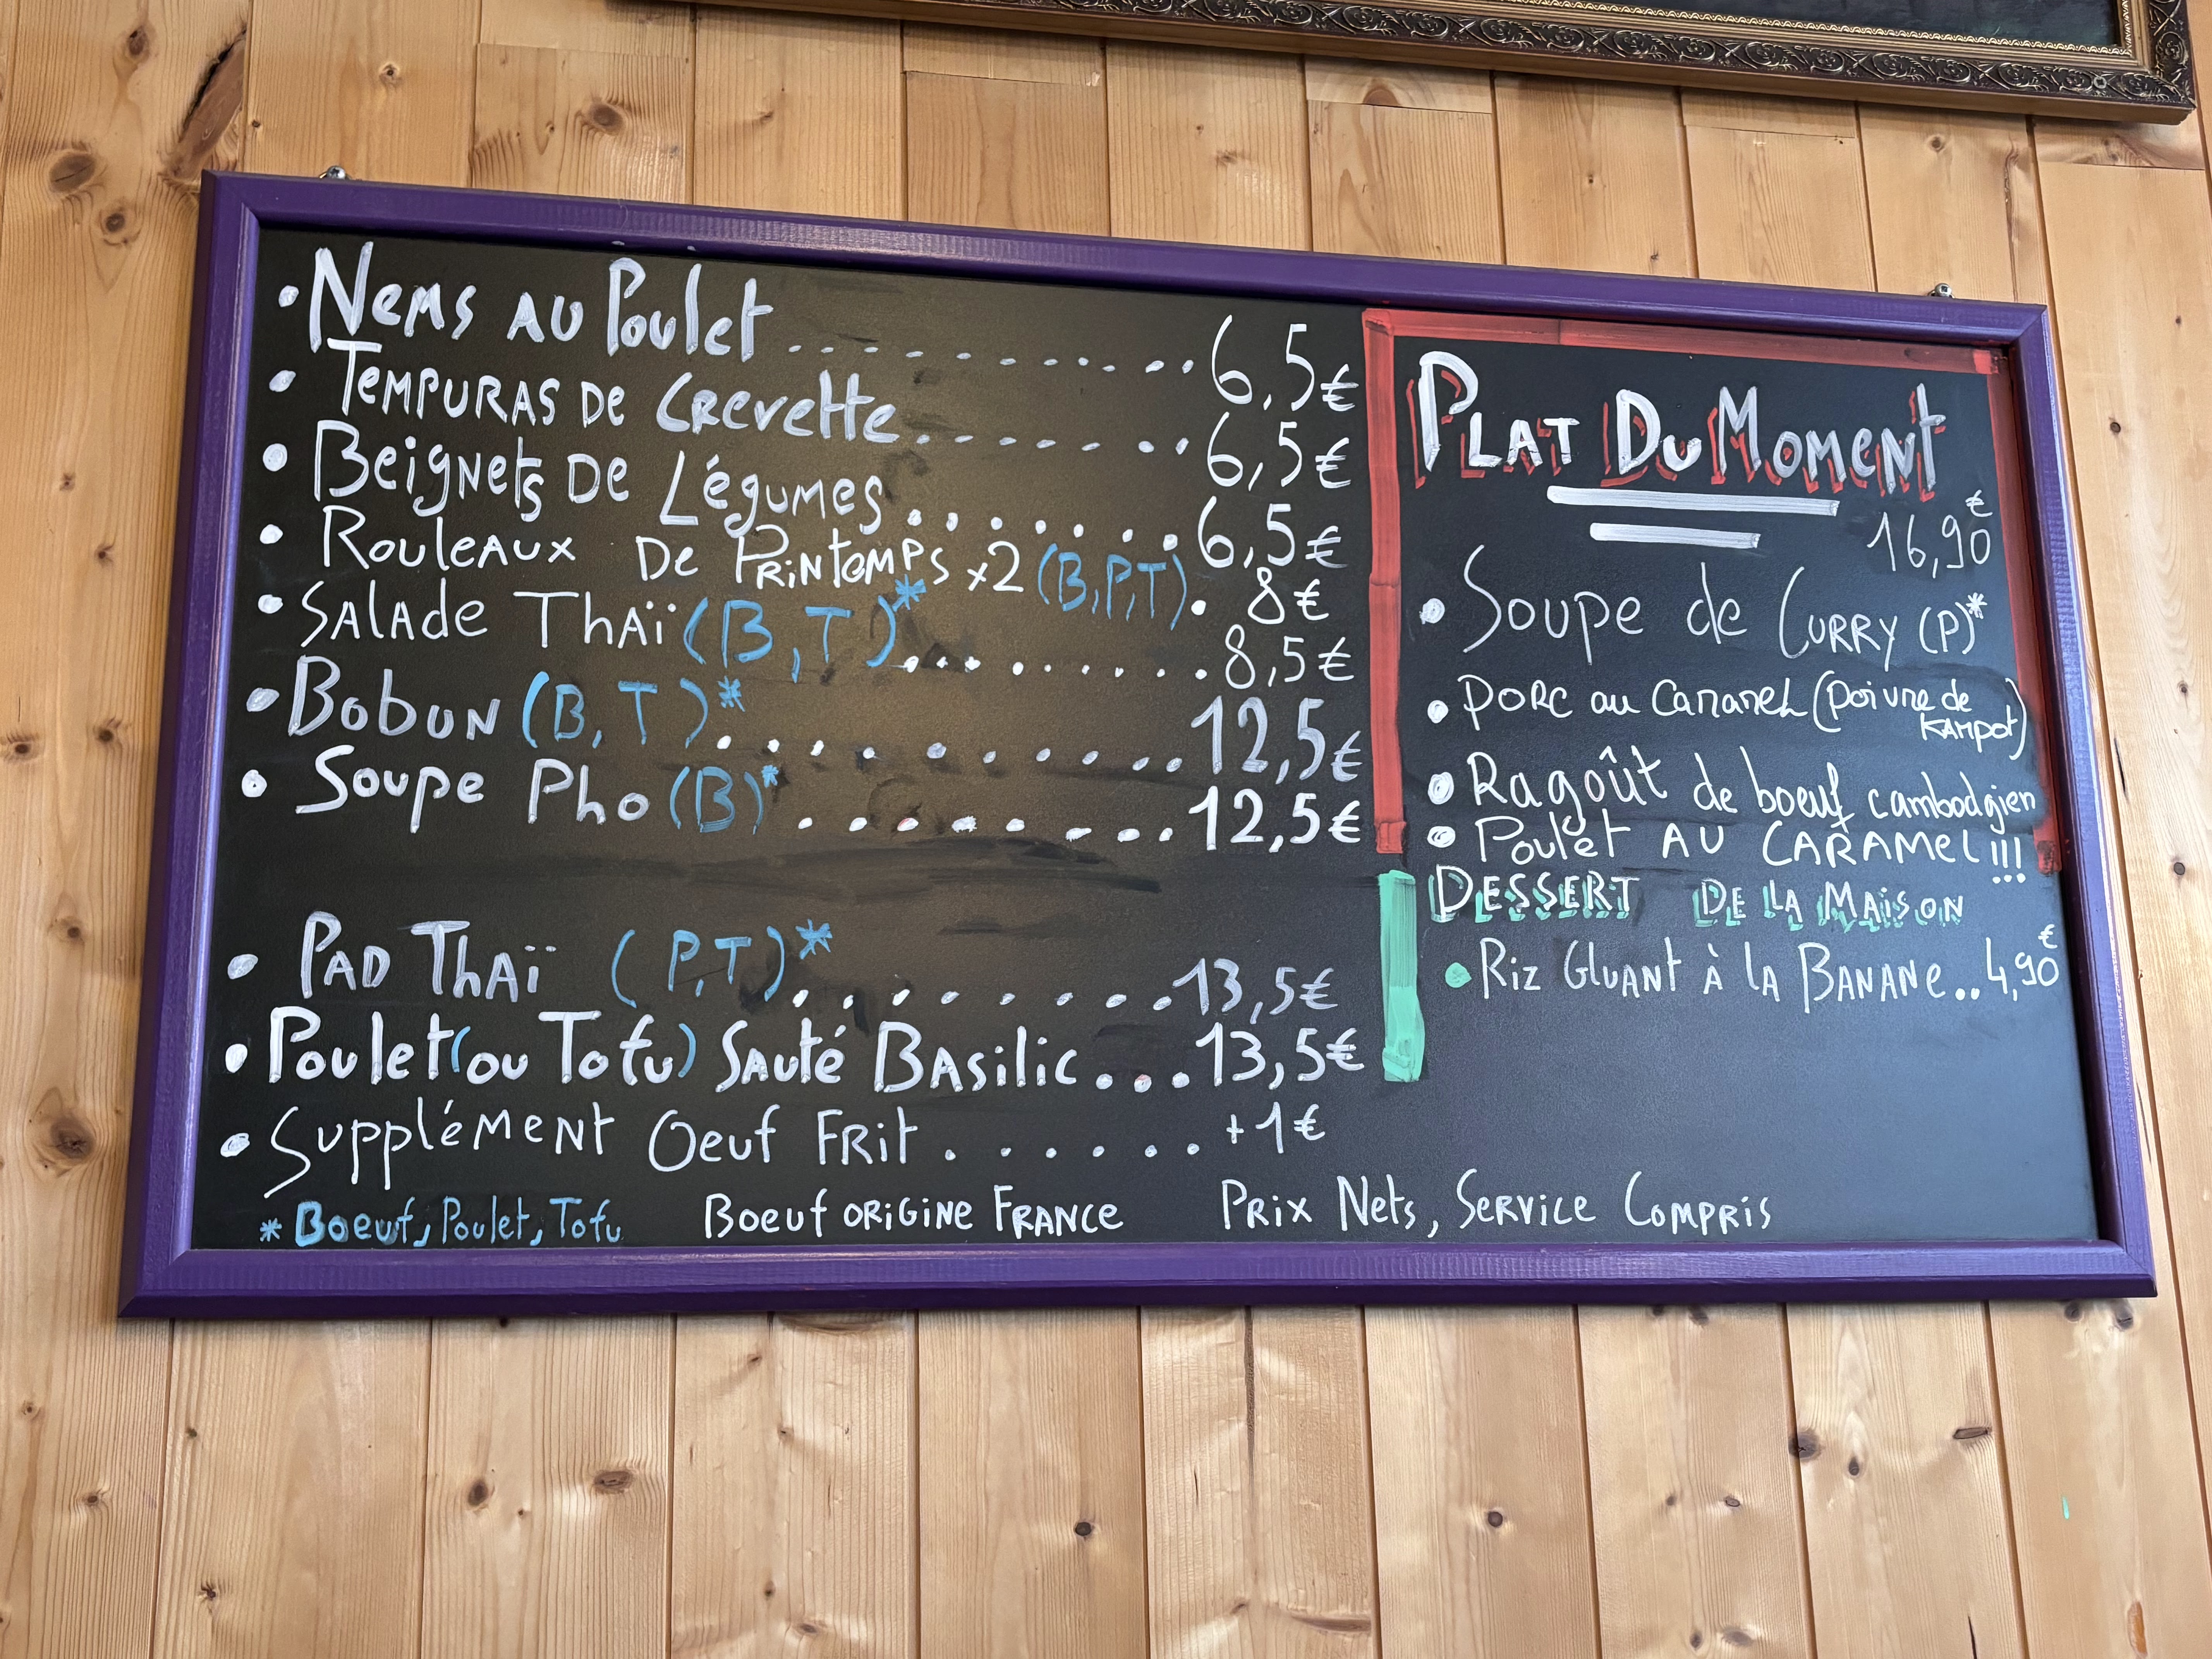 • Nems au Poulet ........... 6,5€
• Tempuras de Crevette ....... 6,5€
• Beignets de Légumes ....... 6,5€
• Rouleaux de Printemps x2 (B,P,T) . 8€
• Salade Thaï (B,T)* ......... 8,5€
• Bobun (B,T)* ........... 12,5€
• Soupe Pho (B)* ........ 12,5€
• Pad Thaï (P,T)* ......... 13,5€
• Poulet (ou Tofu) Sauté Basilic ... 13,5€
• Supplément Oeuf Frit ...... +1€
* Boeuf, Poulet, Tofu
Boeuf origine France
Prix Nets, Service Compris
Plat du Moment
16,90€
• Soupe de Curry (P)*
• Porc au Caramel (poivre de
Kampot)
• Ragoût de boeuf cambodgien
• Poulet au Caramel !!!
Dessert de la Maison
• Riz Gluant à la Banane .. 4,90€